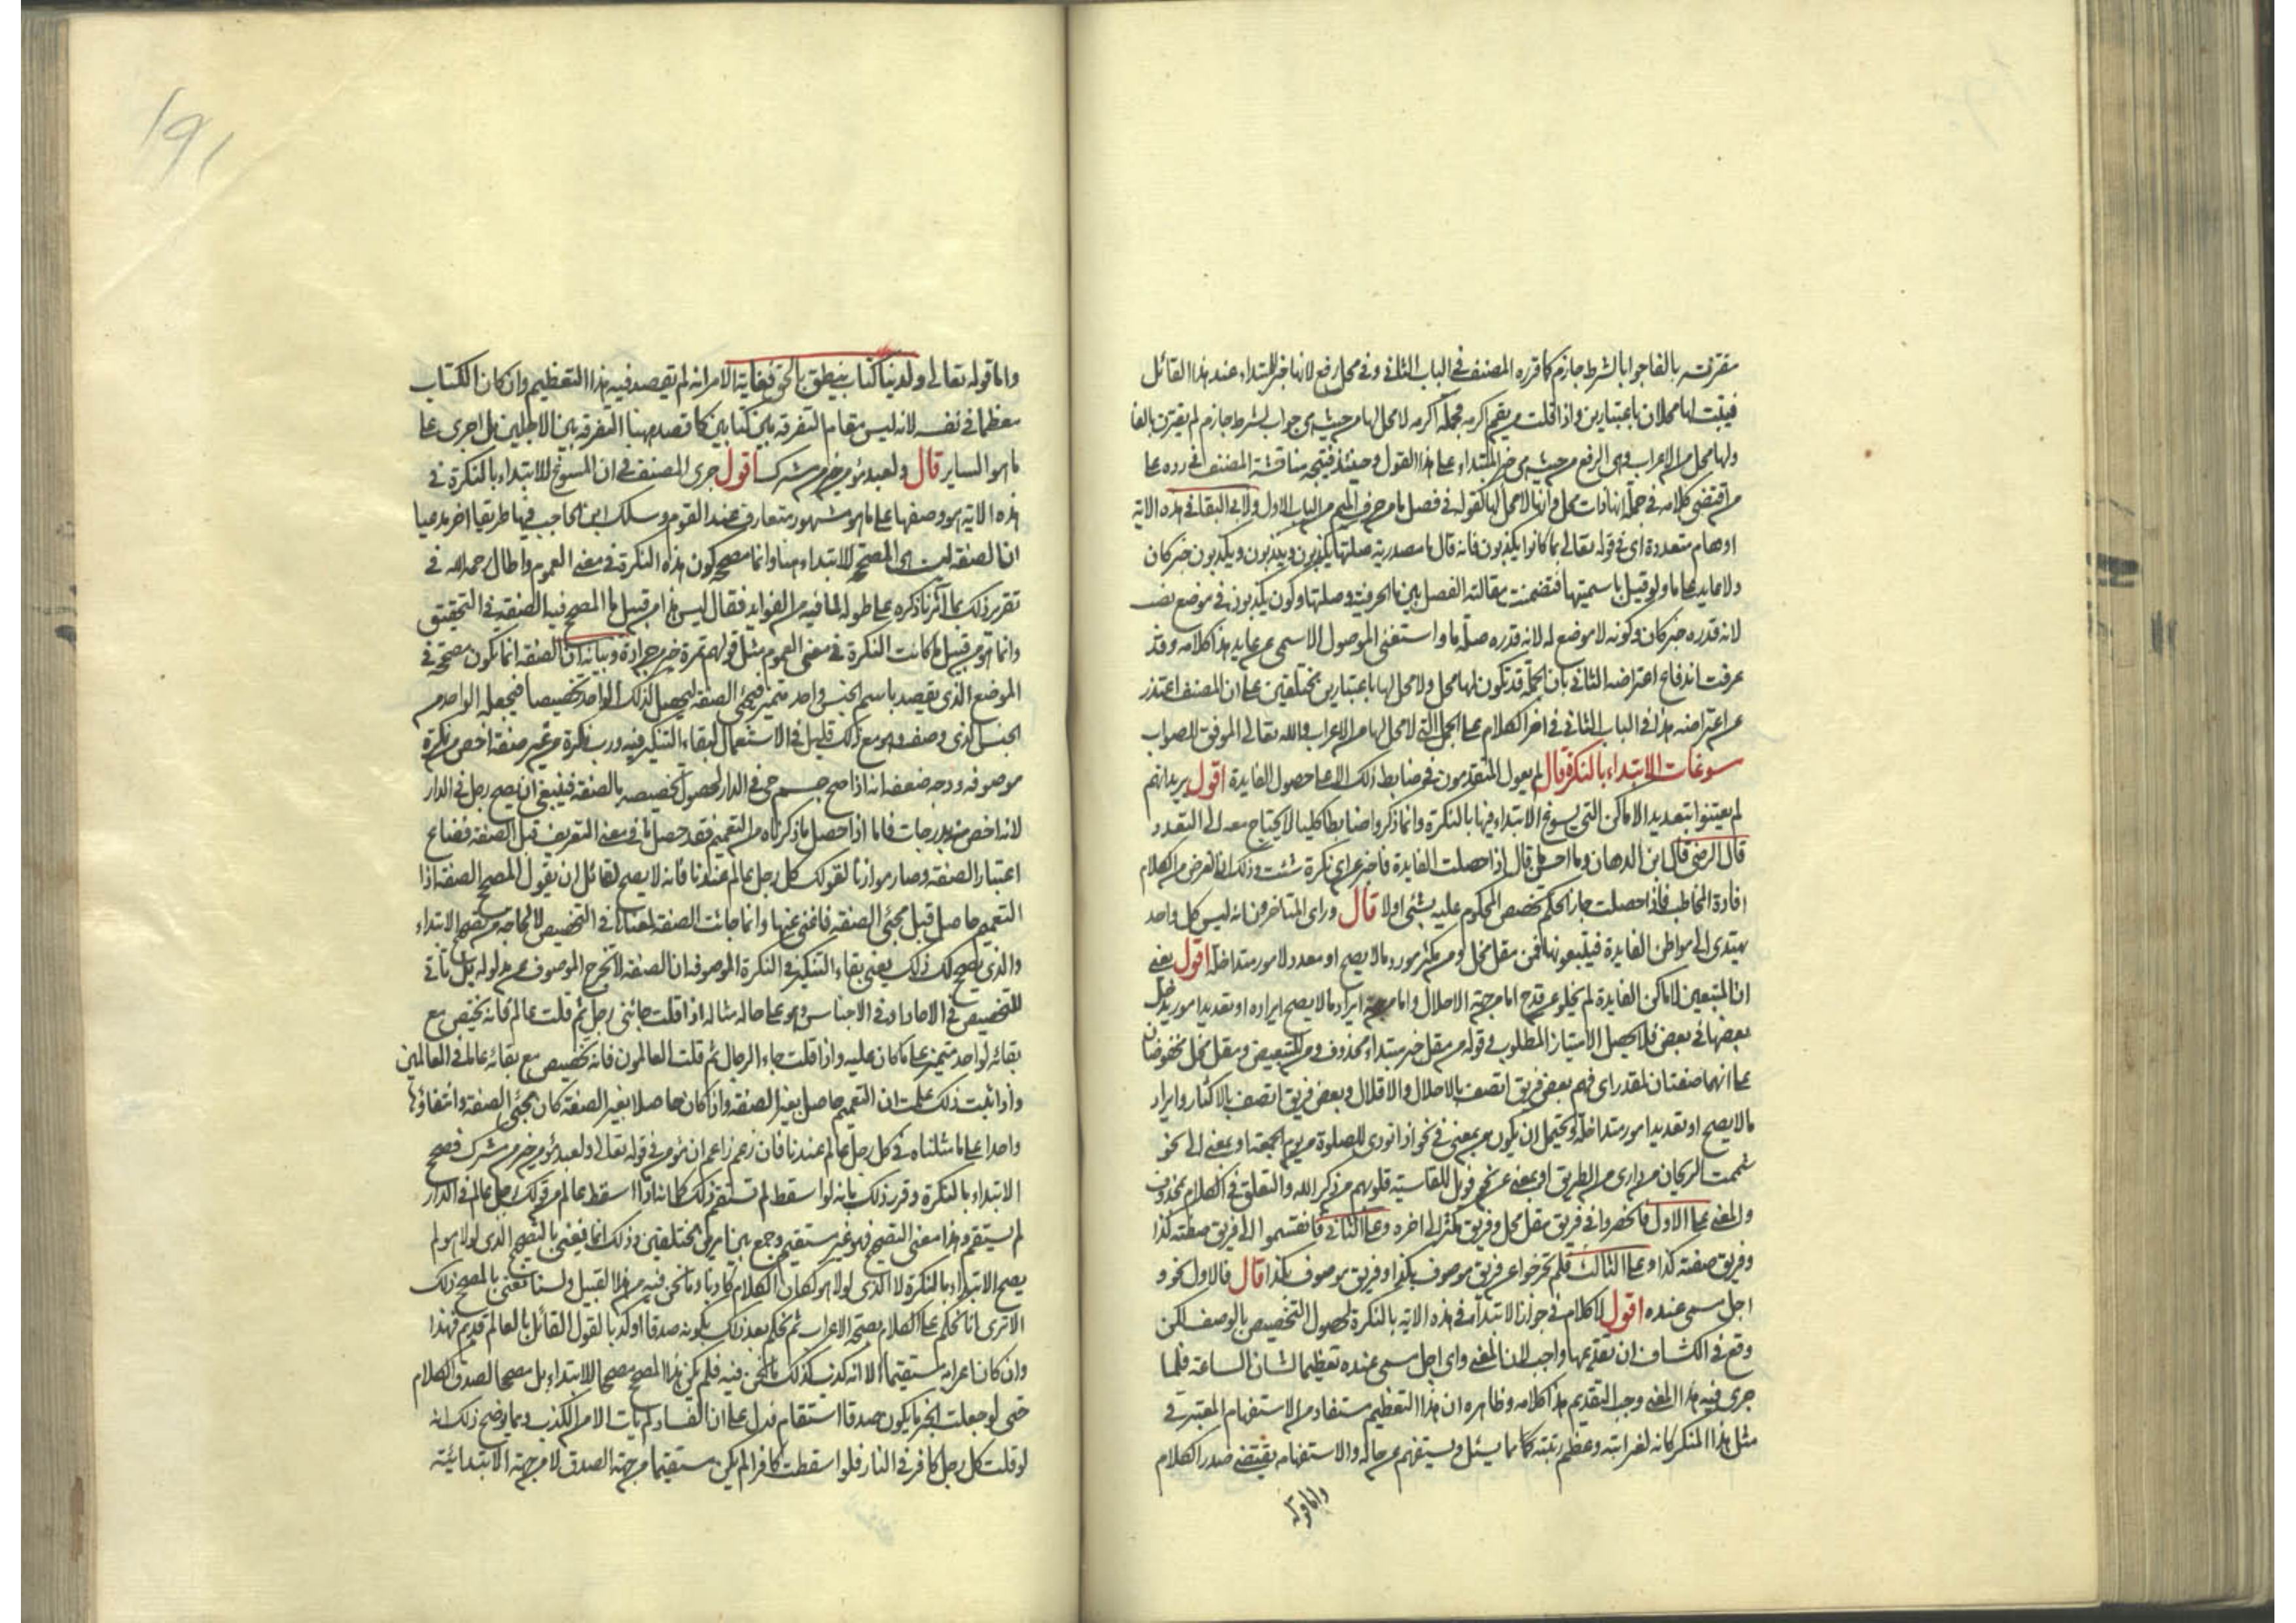 مقترنة بالفا جوابا لشرط جازم كما قرره المصنف في الباب الثاني وفي محل رفع لانها خبر للمبتداء عند هذا القائل
فيثبت لها محلان باعتبارين واذا قلت من يقم اكرمه فجملة اكرمه لا محل لها من حيث هي جواب لشرط جازم لم يقترن بالفا
ولها محل من الاعراب وهي الرفع من حيث هي خبر المبتداء على هذا القول وحينئذ فيتجه مناقشة المصنف في رده على
من اقتضى كلامه في جملة انها ذات محل وانها لا محل لها كقوله في فصل ما من حرف الميم من الباب الاول ولابي البقا في هذه الاية
اوهام متعددة اي في قوله تعالى بما كانوا يكذبون فانه قال ما مصدرية صلتها يكذبون ويكذبون ويكذبون خبر كان
ولا عايد على ما ولو قيل باسميتها فتضمنت مقالته الفصل بين ما الحرفية وصلتها وكون يكذبون في موضع نصب
لانه قدره خبر كان وكونه لا موضع له لانه قدره صلة ما واستغنى الموصول الاسمي عن عايد هذا كلامه وقد
عرفت اندفاع اعتراضه الثاني بان الجملة قد تكون لها محل ولا محل لها باعتبارين مختلفين على ان المصنف اعتذر
عن اعتراضه هذا في الباب الثاني في اخر الكلام على الجمل التي لا محل لها من الاعراب والله تعالى الموفق للصواب
سوغات الابتداء بالنكرة قال لم يعول المتقدمون في ضابط ذلك الا على حصول الفايدة اقول يريد انهم
لم يعتنوا بتعديد الاماكن التي يسوغ الابتداء فيها بالنكرة وانما ذكروا ضابطا كليا لا يحتاج معه الى التعدد
قال الرضي قال ابن الدهان وما احسن ما قال اذا حصلت الفايدة فاخبر عن اي نكرة شئت وذلك لان الغرض من الكلام
افادة المخاطب فاذا حصلت جاز الحكم تخصص المحكوم عليه بشئ اولا قال وراى المتاخرون انه ليس كل واحد
يهتدى الى مواطن الفايدة فيتبعونها فمن مقل مخل ومن مكثر مورد ما لا يصح او معدد لامور متداخلة اقول يعني
ان المتبعين لاماكن الفايدة لم يخلو عن قدح اما من جهة الاخلال واما من جهة ايراد ما لا يصح ايراده او تعديد امور يدخل
بعضها في بعض فلا يحصل الامتياز المطلوب في قوله من مقل خبر مبتداء محذوف ومن للتبعيض ومقل مخل مخفوضان
على انهما صفتان لمقدر اي فهم بعض فريق اتصف بالاخلال والاقلال وبعض فريق اتصف بالاكثار وايراد
ما لا يصح او تعديد امور متداخلة ويحتمل ان يكون من بمعنى في نحو اذا نودي للصلوة من يوم الجمعة او بمعنى الى نحو
شممت الريحان من دارى من الطريق او بمعنى عن نحو فويل للقاسية قلوبهم من ذكر الله والتعلق في الكلام بمحذوف
والمعنى على الاول فانحصروا في فريق مقل مخل وفريق مكثر الى اخره وعلى الثاني فانقسموا الى فريق صفته كذا
وفريق صفته كذا وعلى الثالث فلم تخرجوا عن فريق موصوف بكذا وفريق موصوف بكذا قال فالاول نحو و
اجل مسمى عنده اقول لا كلام في جواز الابتداء في هذه الاية بالنكرة لحصول التخصيص بالوصف لكن
وقع في الكشاف ان تقديمها واجب لان المعنى واي اجل مسمى عنده تعظيما لشان الساعة فلما
جرى فيه هذا المعنى وجب التقديم هذا كلامه وظاهره ان هذا التعظيم مستفاد من الاستفهام المعتبر في
مثل هذا المنكر كانه لغرابته وعظم رتبته كانما يسئل ويستفهم عن حاله والاستفهام يقتضي صدر الكلام
واما قوله
١٩١
واما قوله تعالى ولدينا كتاب ينطق بالحق فغاية الامر انه لم تقصد فيه هذا التعظيم وان كان الكتاب
معظما في نفسه لانه ليس مقام التفرقة بين كتابين كما قصد ههنا التفرقة بين الاجلين بل اجرى على
ما هو الساير قال ولعبد مؤمن خير من مشرك اقول جرى المصنف في ان المسوغ للابتداء بالنكرة في
هذه الاية هو وصفها على ما هو مشهور متعارف عند القوم وسلك ابن الحاجب فيها طريقا اخر مدعيا
ان الصفة ليست هي المصحح للابتداء هنا وانما مصححه كون هذه النكرة في معنى العموم واطال رحمه الله في
تقرير ذلك بما آثرنا ذكره على طوله لما فيه من الفوايد فقال ليس هذا من قبيل ما المصحح فيه الصفة في التحقيق
وانما هو من قبيل ما كانت النكرة في معنى العموم مثل قولهم تمرة خير من جرادة وبيانه ان الصفة انما يكون مصححة في
الموضع الذي يقصد باسم الجنس واحد متميز فيجئ الصفة ليحصل لذلك الواحد تخصيصا فيجعله الواحد من
الجنس الذي وصف وهو مع ذلك قليل في الاستعمال لبقاء التنكير فيه ورب نكرة من غير صفة اخص من نكرة
موصوفة ووجه ضعفه انه اذا صح جسم حي في الدار لحصول تخصيصه بالصفة فينبغي ان يصح رجل في الدار
لانه اخص منه بدرجات فاما اذا حصل ما ذكرناه من التعميم فقد حصل ما في معنى التعريف قبل الصفة فضاع
اعتبار الصفة وصار موازنا لقولك كل رجل عالم عندنا فانه لا يصح لقائل ان يقول المصحح الصفة اذا
التعميم حاصل قبل مجئ الصفة فاغنى عنها وانما جائت الصفة لمعناها في التخصيص لا لحاجة من تصحيح الابتداء
والذي يصحح لك ذلك يعني بقاء التنكير في النكرة الموصوفة ان الصفة لا تخرج الموصوف عن مدلوله بل تأتي
للتخصيص في الاحاد او في الاجناس وهو على حاله مثاله اذا قلت جائني رجل ثم قلت عالم فانه يختص مع
بقائه لواحد متميز على ما كان عليه واذا قلت جاء الرجال ثم قلت العالمون فانه تخصيص مع بقائه عاما في العالمين
واذا ثبت ذلك علمت ان التعميم حاصل بغير الصفة واذا كان حاصلا بغير الصفة كان مجئ الصفة وانتفاؤها
واحدا على ما مثلناه في كل رجل عالم عندنا فان زعم زاعم ان مؤمن في قوله تعالى ولعبد مؤمن خير من مشرك مصحح
الابتداء بالنكرة وقرر ذلك بانه لو اسقط لم تستقم ذلك كما انه اذا اسقط عالم من قولك رجل عالم في الدار
لم يستقم وهذا معنى التصحيح فهو غير مستقيم وجمع بين امرين مختلفين وذلك انما نعني بالتصحيح الذي لولا هو لم
يصح الابتداء بالنكرة لا الذي لولا هو لكان الكلام كاذبا وما نحن فيه من هذا القبيل ولسنا نعني بالمصحح ذلك
الا ترى انا نحكم على الكلام بصحة الاعراب ثم نحكم بعد ذلك بكونه صدقا او كذبا لقول القائل بالعالم قديم فهذا
وان كان اعرابه مستقيما الا انه كذب كذلك ما نحن فيه فلم يكن هذا المصحح مصححا للابتداء بل مصححا لصدق الكلام
حتى لو جعلت الخبر ما يكون صدقا استقام فدل على ان الفساد لم يأت الا من الكذب ومما يوضح ذلك انه
لو قلت كل رجل كافر في النار فلو اسقطت كافرا لم يكن مستقيما من جهة الصدق لا من جهة الابتدائية